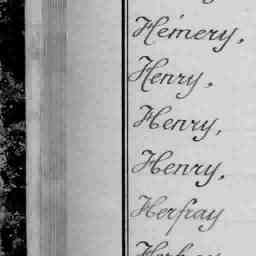 Hémery,
Henry,
Henry,
Henry,
Herfray